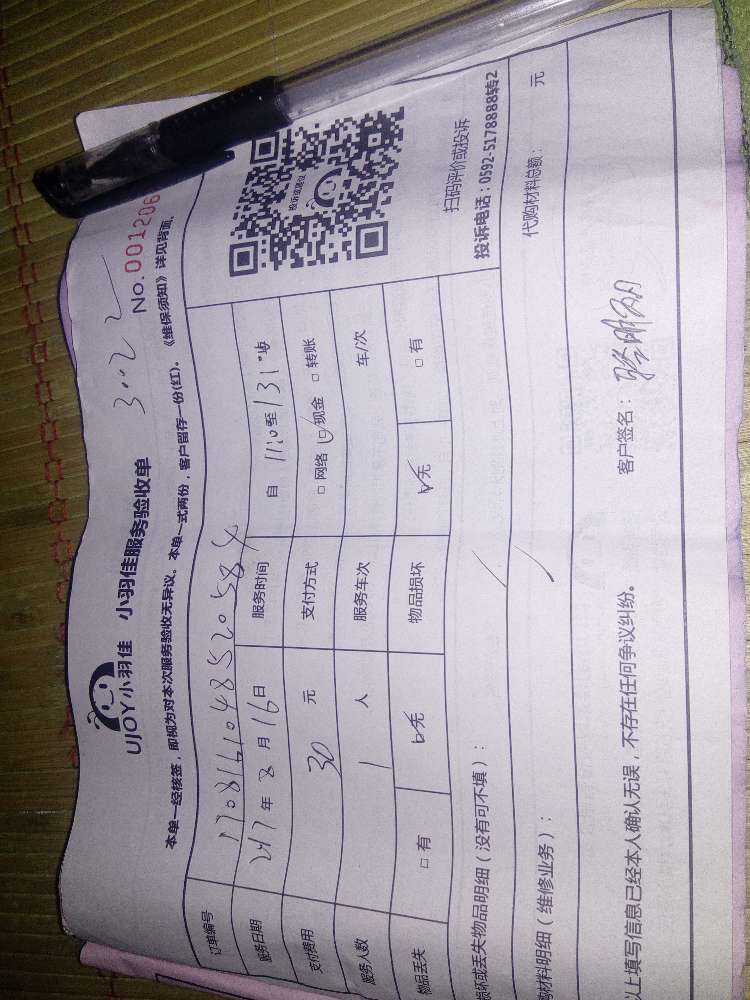 UJOY小羽佳 小羽佳服务验收单
No.001206
本单一经核签，即视为对本次服务验收无异议。本单一式两份，客户留存一份(红)。《维保须知》详见背面。
订单编号 1708161048520584
服务日期 2017年8月16日 服务时间 自 11:10至
支付费用 30元 支付方式 □网络 □现金 □转账
服务人数 1人 服务车次 车/次
物品丢失 □有 无 物品损坏 无 □有
投诉或建议
扫码评价或投诉
投诉电话：0592-5178888转2
损坏或丢失物品明细（没有可不填）：
购材料明细（维修业务）： 代购材料总额： 元
以上填写信息已经本人确认无误，不存在任何争议纠纷。 客户签名：